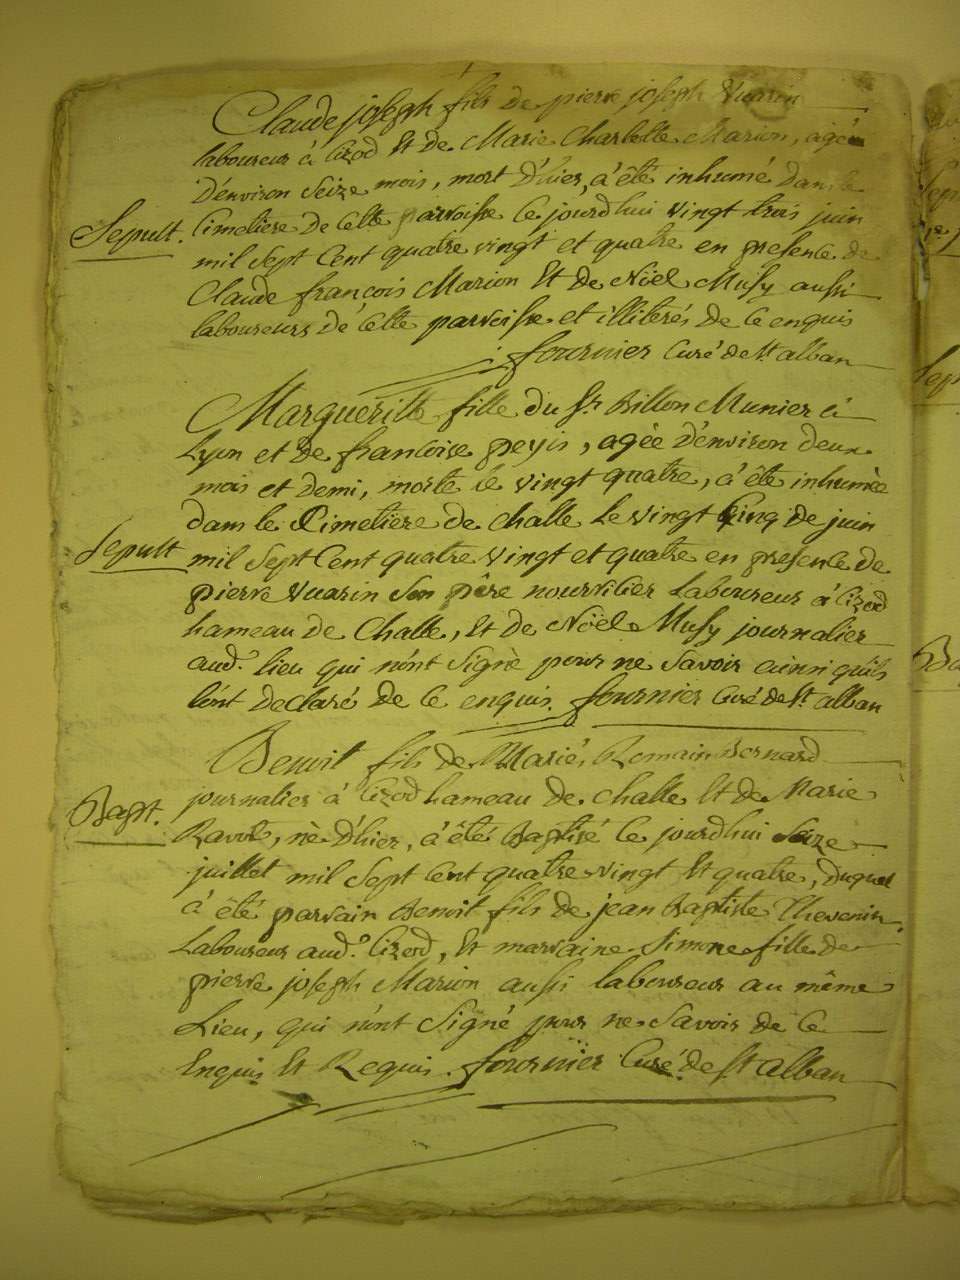 Claude joseph fils de pierre joseph Vuarin
laboureur à Cizod Et de Marie Charlotte Marion, agé
d'énviron seize mois, mort d'hier, à été inhumé dans le
Sepult. Cimetiere de Cette parroisse Ce jourd'hui vingt trois juin
mil sept Cent quatre vingt et quatre en presence de
Claude françois Marion Et de Nöel Musy aussi
laboureurs de Cette parroisse et illiterés de Ce enquis
fournier Curé de St alban
Marguèritte fille du Sr. Billon Munier à
Lyon et de francoise peysi, agée d'énviron deux
mois et demi, morte le vingt quatre, à été inhumèe
dans le Cimetiere de Challe Le vingt Cinq de juin
Sepult mil sept Cent quatre vingt et quatre en presence de
pierre Vuarin Son père nourricier Laboureur à Cizod
hameau de Challe, Et de Nöel Musy journalier
aud. lieu qui n'ont Signè pour ne Savoir ainsi qu'ils
l'ont declaré de Ce enquis. fournier Curé de St. alban
Benoit fils de Marié Romain Bernard
journalier à Cizod hameau de Challe Et de Marie
Bapt. Ravot, nè d'hier, à été Baptisé Ce jourd'hui Seize
juillet mil Sept Cent quatre vingt Et quatre, duquel
à été parrain Benoit fils de jean Baptiste Thevenin
Laboureur aud. Cizod, Et marraine Simone fille de
pierre joseph Marion aussi laboureur au même
Lieu, qui n'ont Signé pour ne Savoir de Ce
Enquis Et Requis. fournier Curé de St alban